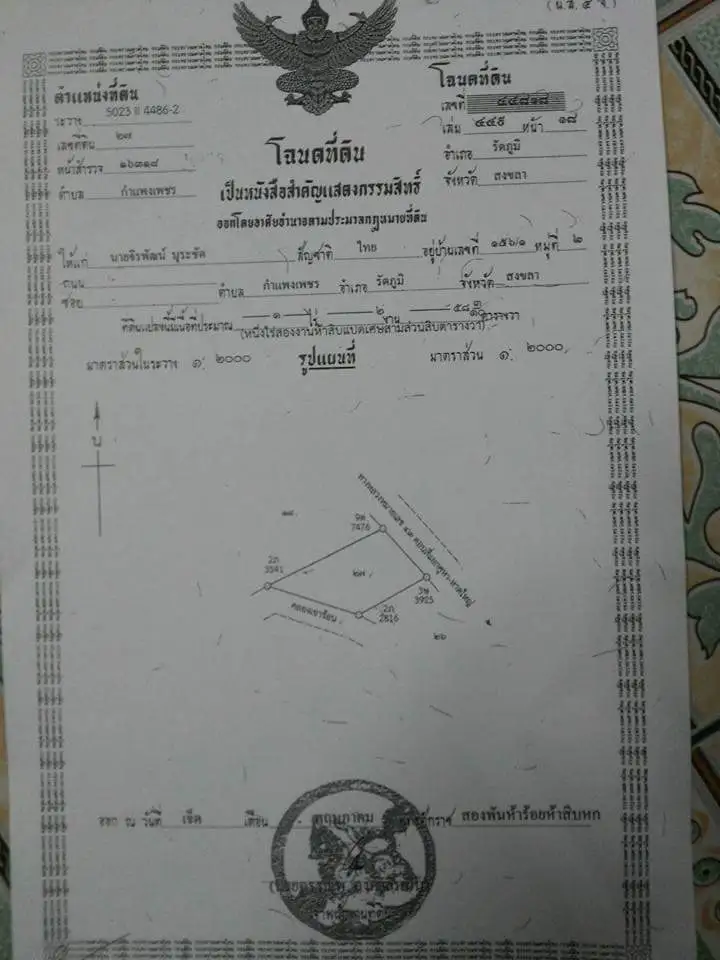 (น.ส.๔ จ.)
ตำแหน่งที่ดิน
ระวาง 5023 II 4486-2
เลขที่ดิน ๒๗
หน้าสำรวจ ๑๖๓๑๘
ตำบล กำแพงเพชร
โฉนดที่ดิน
เลขที่ ๔๔๘๑๘
เล่ม ๔๔๙ หน้า ๑๘
อำเภอ รัตภูมิ
จังหวัด สงขลา
โฉนดที่ดิน
เป็นหนังสือสำคัญแสดงกรรมสิทธิ์
ออกโดยอาศัยอำนาจตามประมวลกฎหมายที่ดิน
ให้แก่ นายจิรพัฒน์ บุระชัด สัญชาติ ไทย อยู่บ้านเลขที่ ๑๕๖/๑ หมู่ที่ ๒
ถนน
ซอย ตำบล กำแพงเพชร อำเภอ รัตภูมิ จังหวัด สงขลา
ที่ดินแปลงนี้มีเนื้อที่ประมาณ ๑ ไร่ ๒ งาน ๕๘ ๓/๑๐ ตารางวา
(หนึ่งไร่สองงานห้าสิบแปดเศษสามส่วนสิบตารางวา)
มาตราส่วนในระวาง ๑: ๒๐๐๐ รูปแผนที่ มาตราส่วน ๑: ๒๐๐๐
น
ทางหลวงหมายเลข ๔๓ ตอน
7476
2ภ
3541
๒๗
3925
2ภ
2816
๒๖
ออก ณ วันที่ เจ็ด เดือน พฤษภาคม สองพันห้าร้อยห้าสิบหก